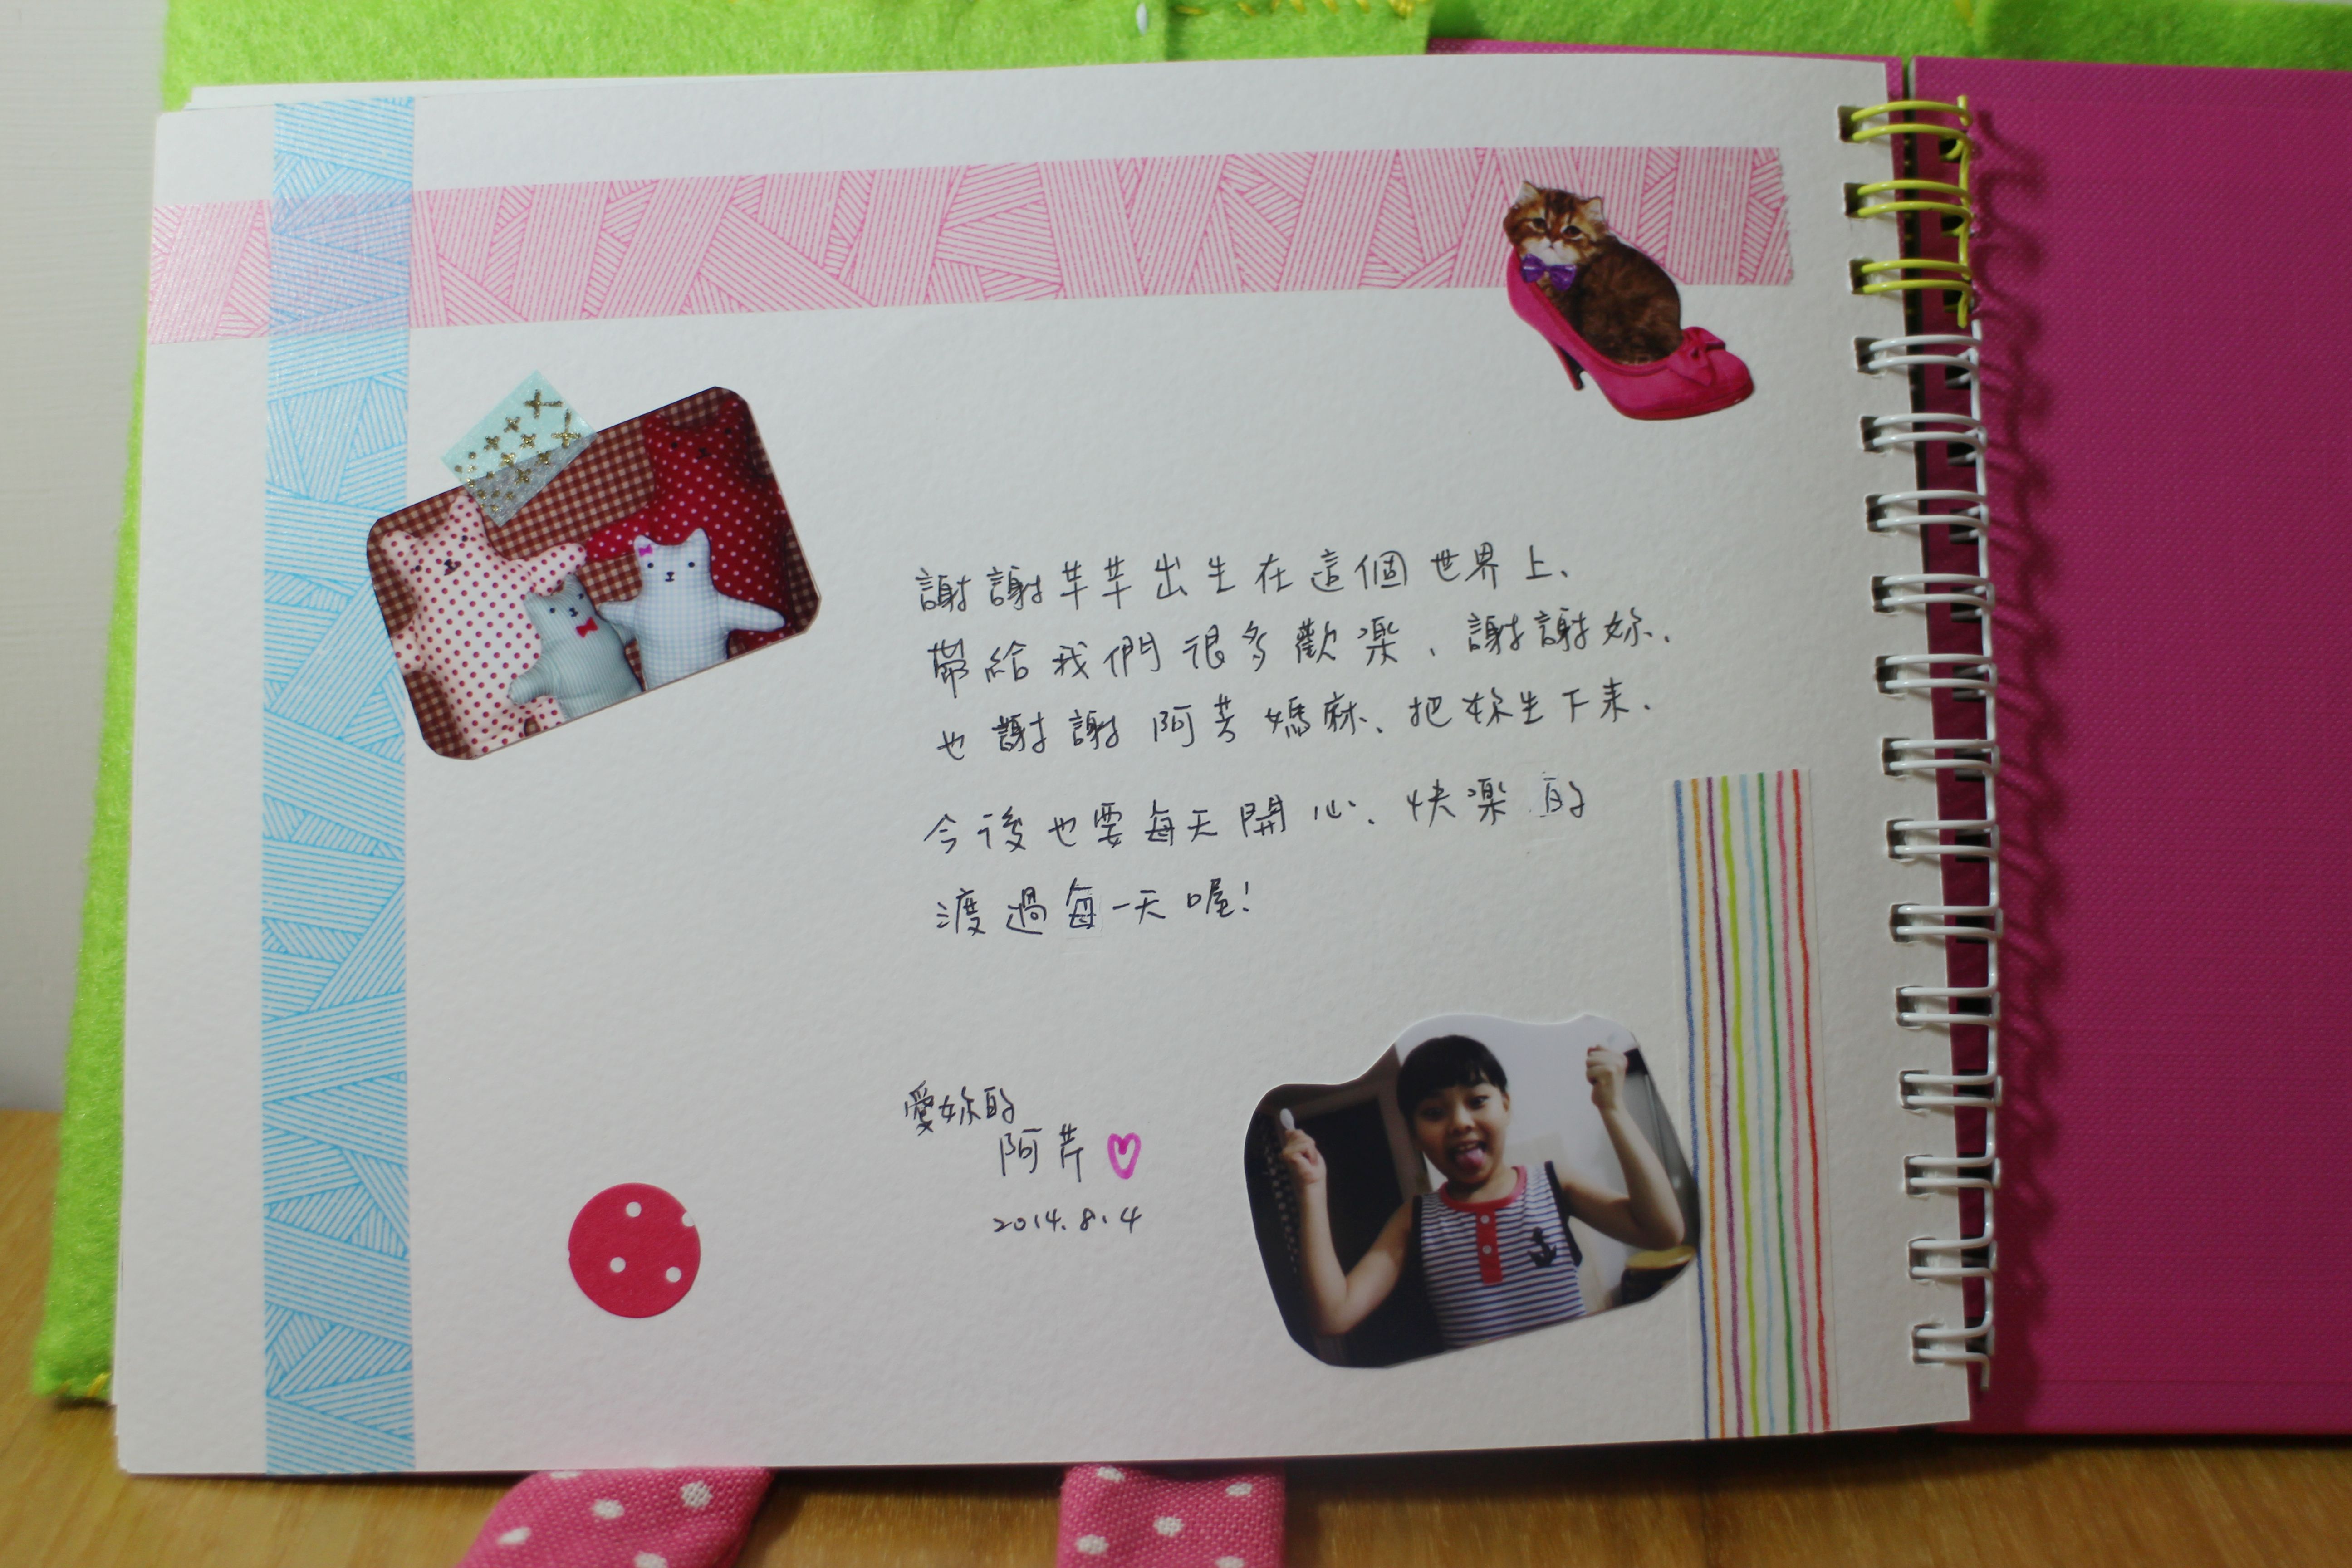 謝謝芊芊出生在這個世界上、
帶給我們很多歡樂、謝謝妳、
也謝謝阿芳媽麻、把妳生下来.
今後也要每天開心、快樂的
渡過每一天喔!
愛妳的
阿芹
2014.8.4